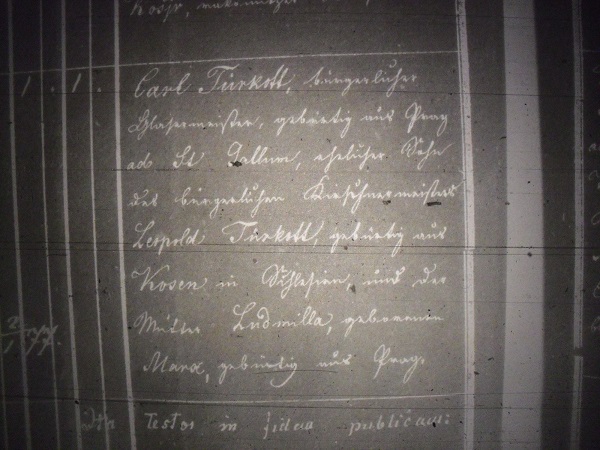 1. 1. Carl Türkott, bürgerlicher
Glasermeister, gebürtig aus Prag
ad St Gallum, ehelicher Sohn
des bürgerlichen Kirschnermeisters
Leopold Türkott, gebürtig aus
Kosen in Schlesien, und der
Mutter Ludmilla, gebornenen
Marx, gebürtig aus Prag.
Ita Testor in fidem publicam: